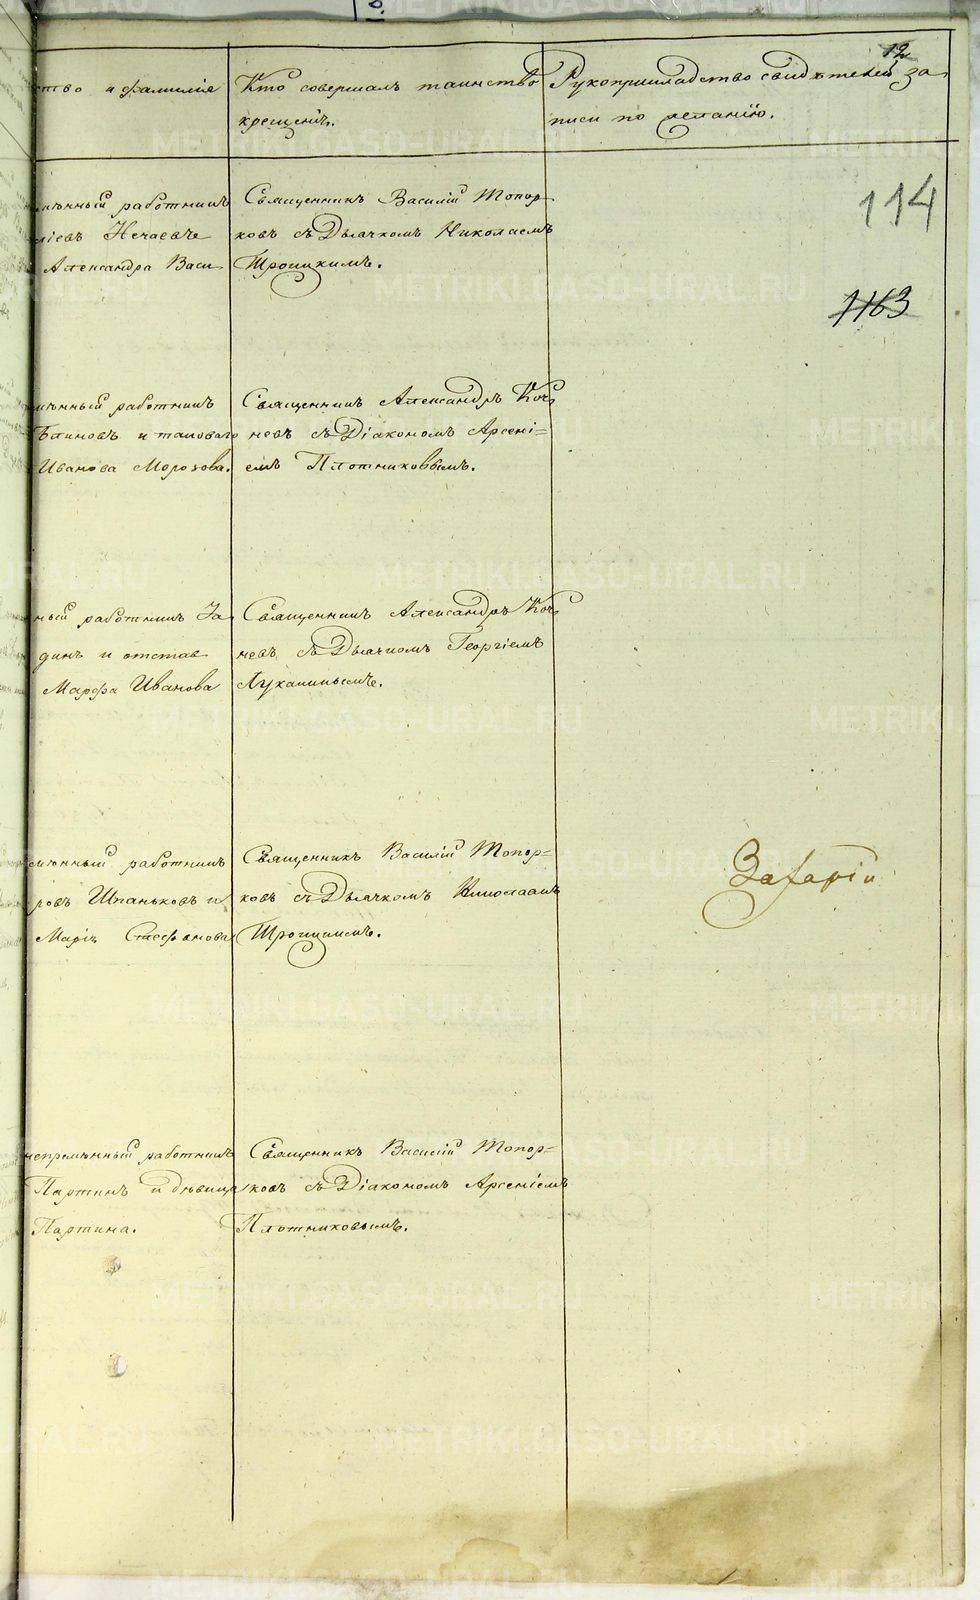 12
ство и фамилія
Кто совершалъ таинство
крещенія.
Рукоприкладство свидѣтелей за
писи по желанію.
114
1163
мѣнный работникъ
Нечаевъ
Александра Васи
Священникъ Василій Топор
ковъ съ Дьячкомъ Николаемъ
Троицкимъ.
мѣнный работникъ
Блиновъ и таковаго
Иванова Морозова.
Священникъ Александръ Коч
невъ съ Діакономъ Арсені=
емъ Плотниковымъ.
ный работникъ
динъ и отстав
Марфа Иванова
Священникъ Александръ Коч
невъ съ Дьячкомъ Георгіемъ
Луканинымъ.
мѣнный работникъ
ровъ Шпаньковъ и
Марія Стефанова
Священникъ Василій Топор=
ковъ съ Дьячкомъ Николаемъ
Троицкимъ.
непремѣнный работникъ
Партинъ и дѣвица
Партина.
Священникъ Василій Топор=
ковъ съ Діакономъ Арсеніемъ
Плотниковымъ.
METRIKI.GASO-URAL.RU